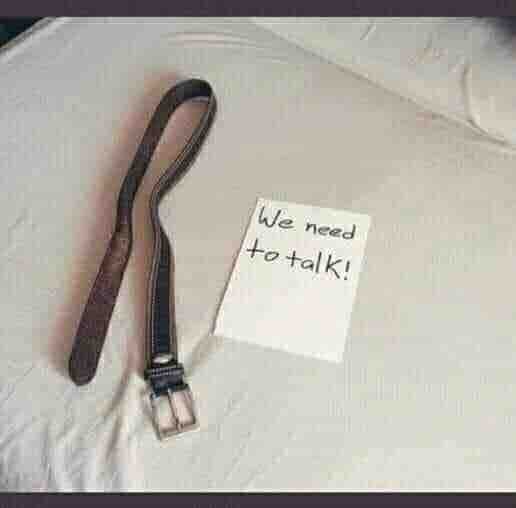 We need
to talk!